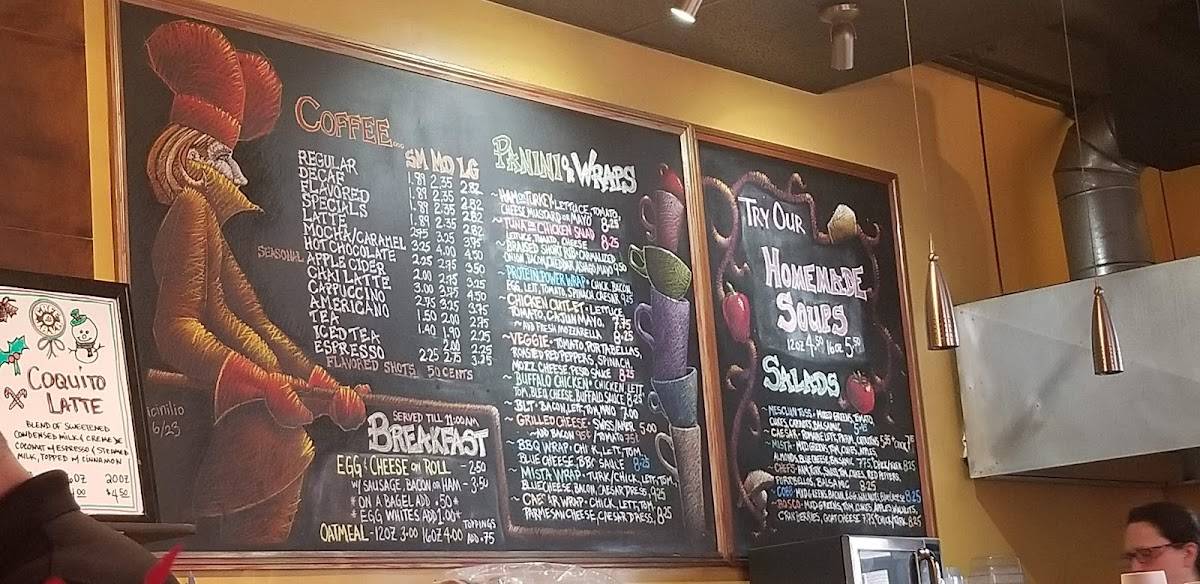 COFFEE...
SM MD LG
REGULAR 1.89 2.35 2.82
DECAF 1.89 2.35 2.82
FLAVORED 1.89 2.35 2.82
SPECIALS 1.89 2.35 2.82
LATTE 2.95 3.25 3.75
MOCHA/CARAMEL 3.25 4.00 4.50
HOT CHOCOLATE 2.25 2.75 3.50
SEASONAL APPLE CIDER
CHAI LATTE
CAPPUCCINO
AMERICANO
TEA
ICED TEA
ESPRESSO 2.25 2.75 3.25
FLAVORED SHOTS 50 CENTS
SERVED TILL 11:00AM
BREAKFAST
EGG & CHEESE ON ROLL - 2.50
W/ SAUSAGE, BACON OR HAM - 3.50
* ON A BAGEL ADD .50 *
* EGG WHITES ADD 1.00+
OATMEAL - 12OZ 3.00 16OZ 4.00 TOPPINGS ADD .75
PANINI & WRAPS
~ HAM OR TURKEY - LETTUCE, TOMATO,
CHEESE, MUSTARD OR MAYO 8.25
~ TUNA OR CHICKEN SALAD
LETTUCE, TOMATO, CHEESE 8.25
~ BRAISED SHORT RIB - CARMALIZED
ONION, BACON, CHEDDAR, MAYO 9.50
~ PROTEIN POWER WRAP - CHICK, BACON,
EGG, LETT, TOMATO, SPINACH, CAESAR 9.25
~ CHICKEN CUTLET - LETTUCE,
TOMATO, CAJUN MAYO. 7.75
~ AND FRESH MOZZARELLA 8.25
~ VEGGIE - TOMATO, PORTABELLAS,
ROASTED RED PEPPERS, SPINACH,
MOZZ CHEESE, PESTO SAUCE 8.25
~ BUFFALO CHICKEN - CHICKEN, LETT,
TOM, BLEU CHEESE, BUFFALO SAUCE 8.25
~ BLT - BACON, LETT, TOM, MAYO 7.00
~ GRILLED CHEESE - SWISS/AMER 5.00
~ AND BACON 95¢ / TOMATO 75¢
~ BBQ WRAP - CHICK, LETT, TOM,
BLUE CHEESE, BBQ SAUCE 8.25
~ MISTY WRAP - TURK/CHICK, LETT, TOM,
BLUE CHEESE, BACON, CAESAR DRESS, 9.25
~ CAESAR WRAP - CHICK, LETT, TOM,
PARMESAN CHEESE, CAESAR DRESS, 8.25
TRY OUR
HOMEMADE
SOUPS
12OZ 4.50 16OZ 5.50
SALADS
~ MESCLUN TOSS - MIXED GREENS, TOMATO,
CUKES, CARROTS, BALSAMIC
~ CAESAR - ROMAINE LETT, PARM, CROUTONS
~ MISTY - MIXD GREEN, TOM, CUKES, APPLES,
ALMONDS, BLUE CHEESE, BALSAMIC
~ CHEFS - HAM, TURK, SWISS, TOM, CUKES, RED PEPPERS,
PORTABELLAS, BALSAMIC 8.25
~ COBB - MXD GREENS, BACON, EGG, WALNUTS, BLUE CHEESE 8.25
~ BOSCH - MXD GREENS, TOM, CUKES, APPLES, WALNUTS,
CRANBERRIES, GOAT CHEESE
COQUITO
LATTE
BLEND OF SWEETENED
CONDENSED MILK & CREME DE
COCONUT W/ ESPRESSO & STEAMED
MILK, TOPPED W/ CINNAMON
20OZ
$4.50